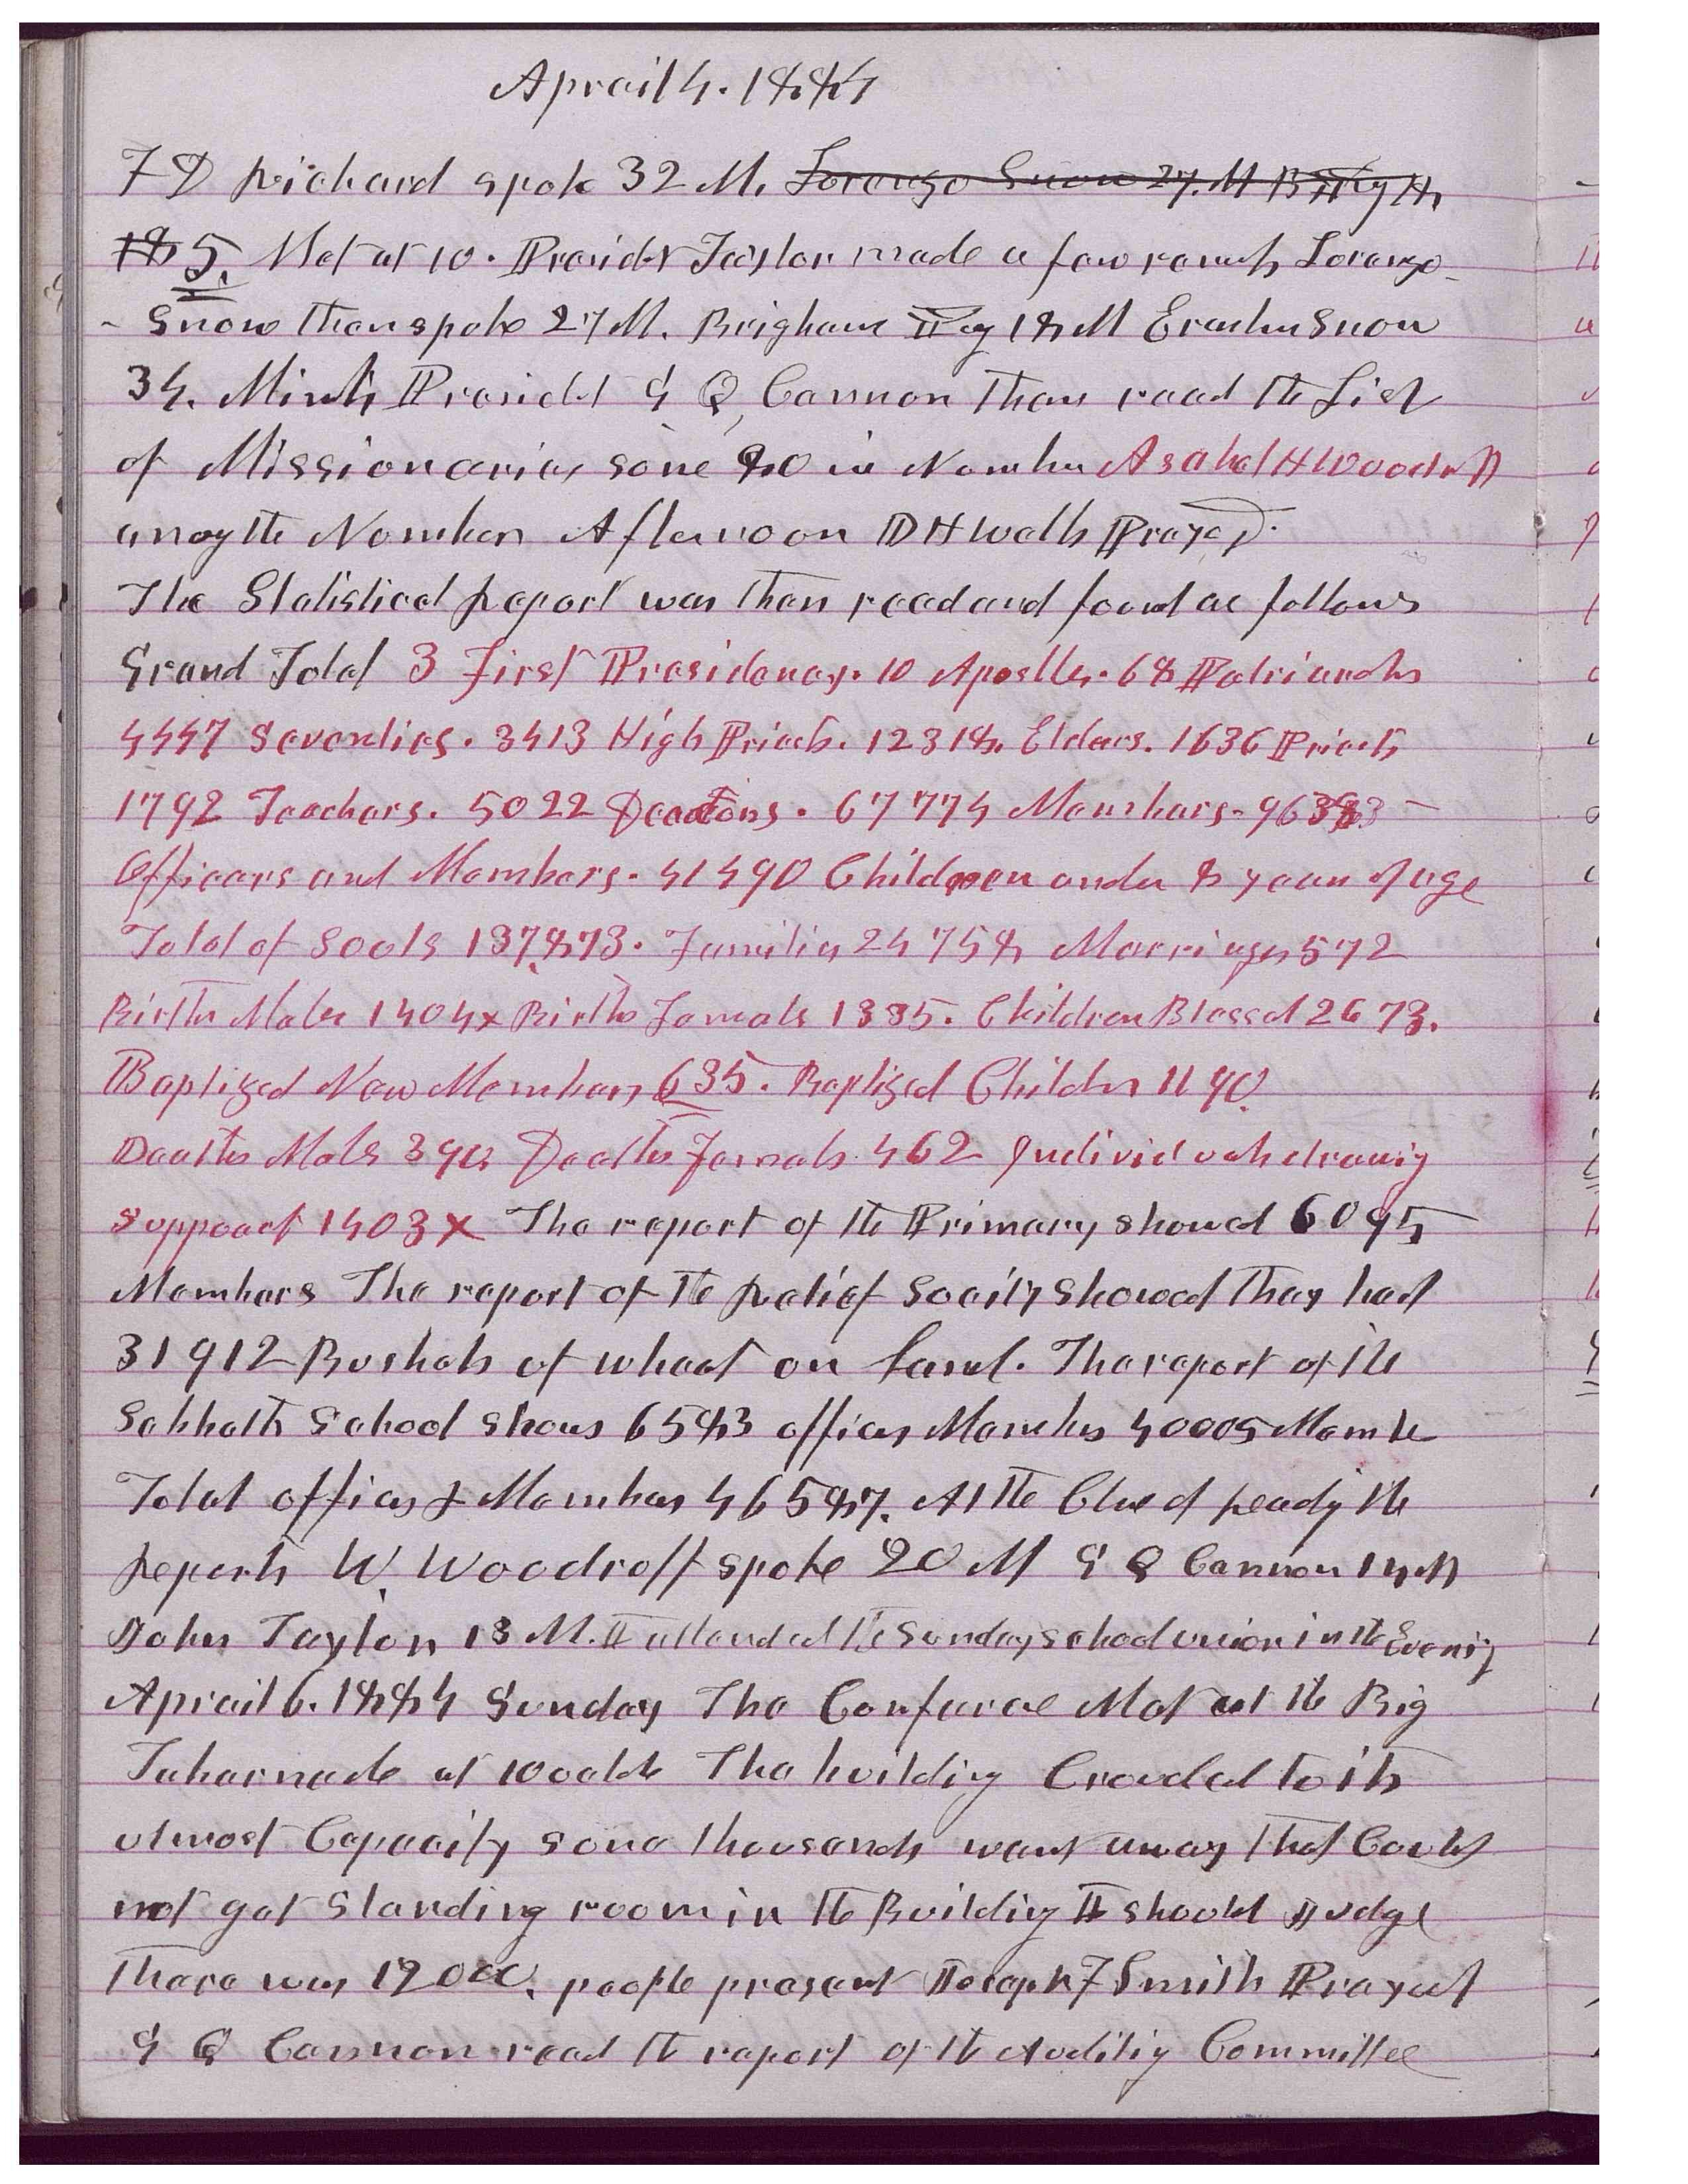 Aprail 4. 1884
F D Richard spok 32 M. Lorenzo Snow 27. M B Ygh
18 5. Met at 10. Presidet Taylor made a few remarks Lorenzo
- Snow then spoke 27 M. Brigham Yg 18 M Erastus Snow
34. Minuts Presidet G Q Cannon then read the List
of Missionaries some 80 in Number Asahel H Woodruff
among the Number Afternoon D H Wells Prayed.
The Statistical Report was then read and found as follows
Grand Total 3 First Presidency. 10 Apostles. 68 Patriarchs
4447 Seventies. 3413 High Priests. 12318. Elders. 1636 Priests
1792 Teachers. 5022 Deacons. 67774 Members. 96383 -
Officers and Members. 41490 Children under 8 years of age
Total of Souls 137,873. Families 24758 Marriages 572
Births Males 1404 x Births Females 1335. Children Blessed 2673.
Baptized New Members 635. Baptized Childrn 1190.
Deaths Mals Deaths Females 462 Individuals drawing
Suppoart 1403 x The report of the Primary showed 6095
Members The report of the Relief Socity showed they had
31912 Bushels of wheat on hand. The report of the
Sabbath School shows 6583 officers Members 40005 Membe
Total officers & Members 46587. At the Close of Readig the
Reports W. Woodruff spoke 20 M G Q Cannon 14 M
John Taylor 13 M. I attended the Sunday school union in the Evenig
Aprail 6. 1884 Sunday The Conference Met at the Big
Tabernacle at 10 oclok The building Crouded to its
utmost Capacity some thousands went away that Could
not get Standing room in the Building I should Judge
there was 12000. people present Joseph F Smith Prayed
G Q Cannon read the report of the Auditig Committee